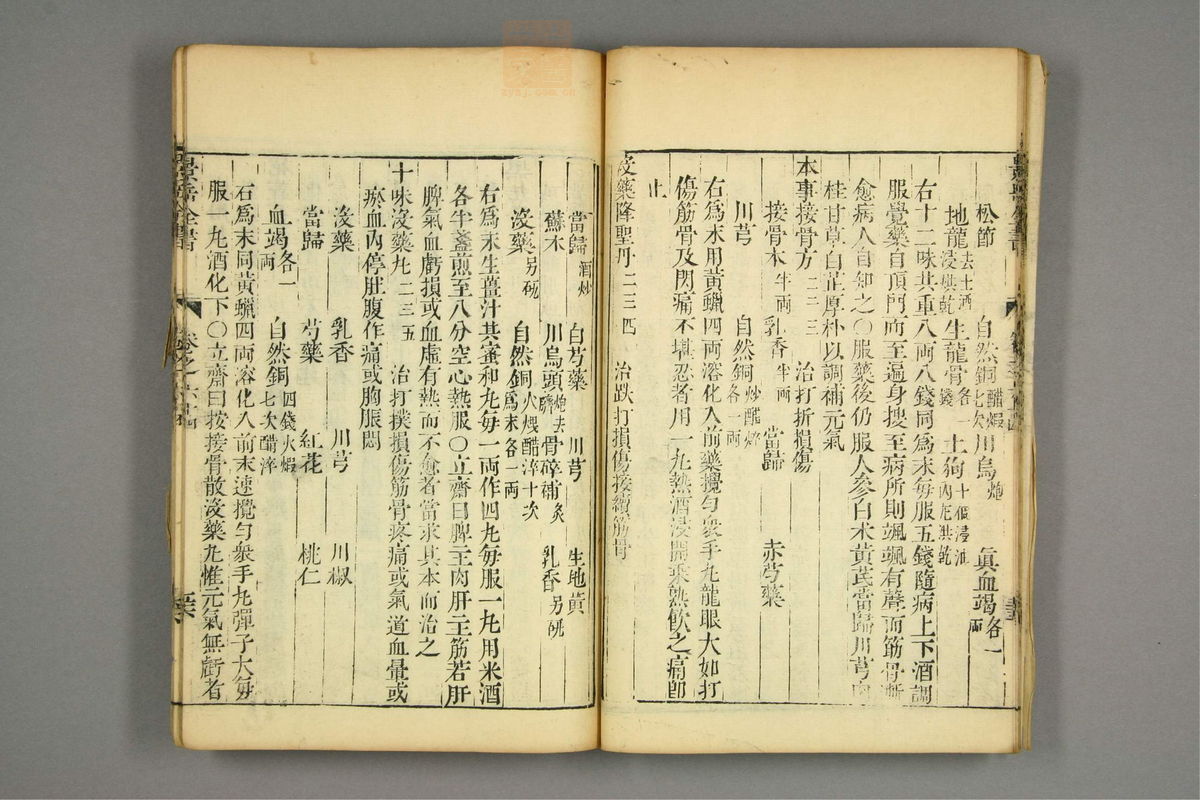 松節 自然銅醋煅七次 川烏炮 眞血竭各一兩
地龍去土酒浸烘乾 生龍骨各一錢 土狗十個浸油內死烘乾
右十二味共重八兩八錢同爲末每服五錢隨病上下酒調
服覺藥自頂門而至遍身搜至病所則颯颯有聲而筋骨漸
愈病人自知之〇服藥後仍服人參白朮黃芪當歸川芎肉
桂甘草白芷厚朴以調補元氣
本事接骨方 二二三 治打折損傷
接骨木半兩 乳香半兩 當歸 赤芍藥
川芎 自然銅炒醋焠各一兩
右爲末用黃蠟四兩溶化入前藥攪勻衆手丸龍眼大如打
傷筋骨及閃痛不堪忍者用一丸熱酒浸開乘熱飲之痛卽
止
沒藥降聖丹 二三四 治跌打損傷接續筋骨
當歸酒炒 白芍藥 川芎 生地黃
蘇木 川烏頭炮去臍 骨碎補炙 乳香另硏
沒藥另硏 自然銅火煅醋淬十次爲末各一兩
右爲末生薑汁共蜜和丸每一兩作四丸每服一丸用米酒
各半盞煎至八分空心熱服〇立齋曰脾主肉肝主筋若肝
脾氣血虧損或血虛有熱而不愈者當求其本而治之
十味沒藥丸 二三五 治打撲損傷筋骨疼痛或氣道血暈或
瘀血內停肚腹作痛或胸脹悶
沒藥 乳香 川芎 川椒
當歸 芍藥 紅花 桃仁
血竭各一兩 自然銅四錢火煅七次醋淬
右爲末同黃蠟四兩溶化入前末速攪勻衆手丸彈子大每
服一丸酒化下〇立齋曰按接骨散沒藥丸惟元氣無虧者
景岳全書
卷之六十四